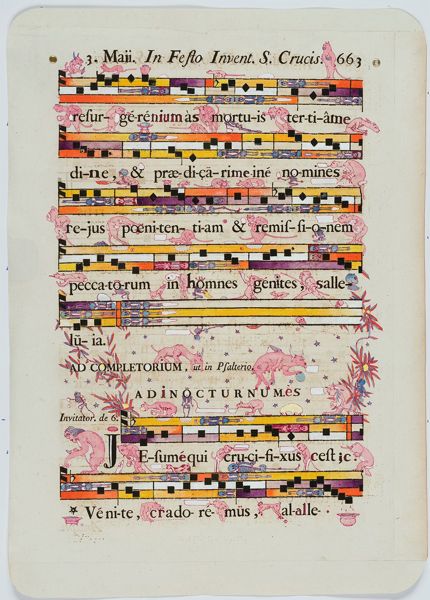 3. Maii. In Festo Invent. S. Crucis. 663
resur- ge-renium as mortu-is ter-ti-âme
di-ne, & præ-di-çã-rime iné no-mines
re-jus pœni-ten-ti-am & remis-si-o-nem
pecca-to-rum in homnes genites, salle-
lû-ia.
AD COMPLETORIUM, ut in Psalterio.
ADINOCTURNUMes
Invitator. de 6.
JEsumequi cru-ci-fi-xus cest
Vé ni-te, crado- re- mus, al-alle-